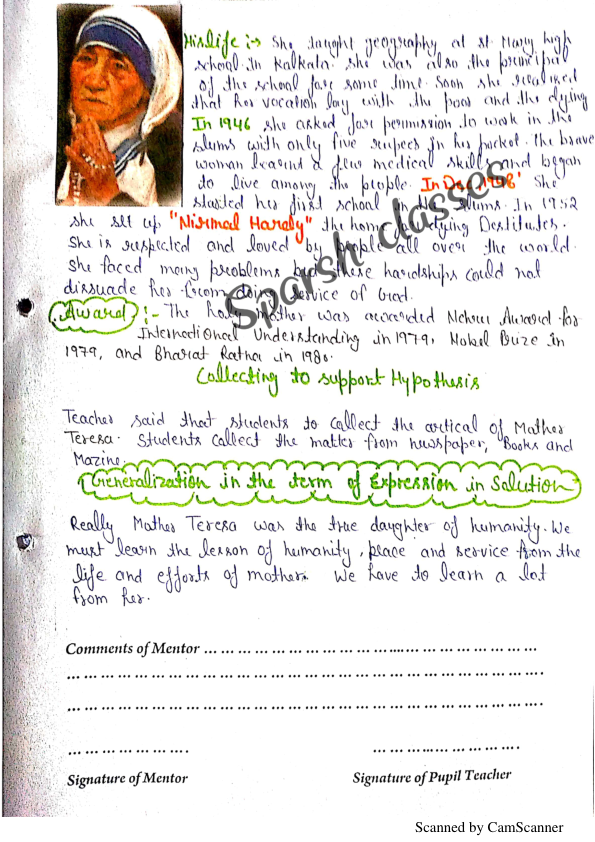 His life :- She taught geography at st. Mary high
school. In Kalkata. she was also the principal
of the school for some time. Soon she realized
that her vocation lay with the poor and the dying
In 1946 she asked for permission to work in the
slums with only five rupees in her pocket. The brave
woman learnd a few medical skills and began
to live among the people. In Dec 1948' She
started her first school in slums. In 1952
she set up "Nirmal Hardy" the home dying Destitutes.
She is respected and loved by people all over the world.
She faced many problems but these hardships could not
dissuade her from doing service of God.
Award :- The holy mother was awarded Nehru Award for
International Understanding in 1979, Nobel Prize in
1979, and Bharat Ratna in 1980.
Collecting to support Hypothesis
Teacher said that students to collect the artical of Mother
Teresa. Students collect the matter from newspaper, Books and
Mazine.
Generalization in the term of Expression in Solution
Really Mother Teresa was the true daughter of humanity. We
must learn the lesson of humanity, peace and service from the
life and efforts of mother. We have to learn a lot
from her.
Comments of Mentor ........................................................................
........................................................................
........................................................................
.................... ........................
Signature of Mentor Signature of Pupil Teacher
Sparsh classes
Scanned by CamScanner